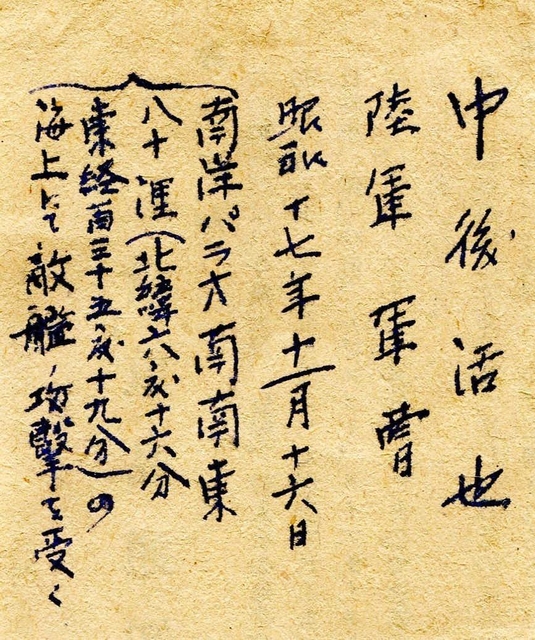 中後活也
陸軍軍曹
昭和十七年十一月十六日
南洋パラオ南南東
八十浬(北緯六度十六分
東経百三十五度十九分)の
海上にて敵艦ノ攻撃を受く